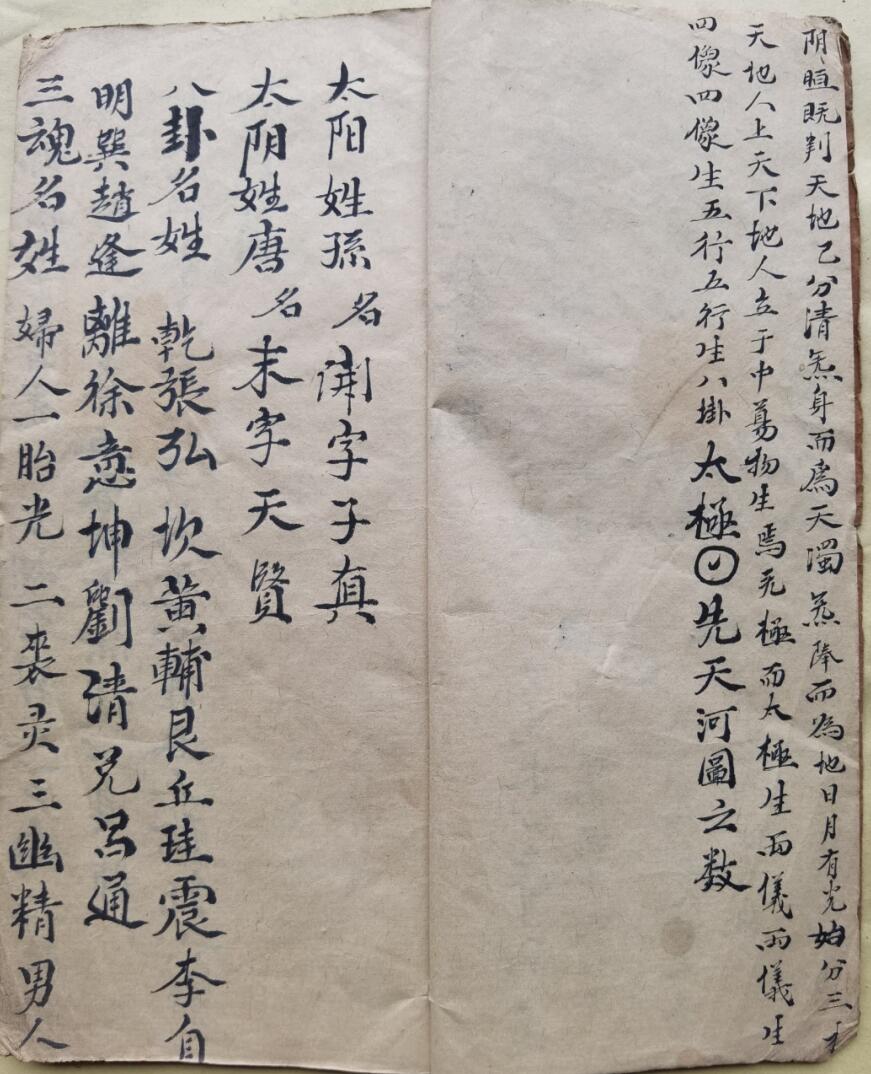 阴晅既判天地已分清炁身而為天濁炁降而為地日月有光始分三才
天地人上天下地人立于中萬物生焉无極而太極生两儀两儀生
四像四像生五行五行生八掛太極先天河圖之数
太阳姓孫名開字子真
太阴姓唐名末字天賢
八卦名姓 乾張弘坎黃輔艮丘珪震李自
明巽趙逢離徐意坤劉清兑呂通
三魂名姓 婦人一眙光二裘灵三幽精男人